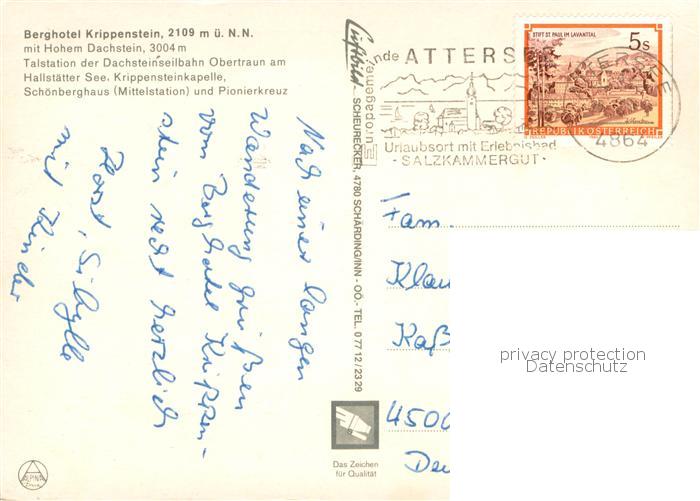 Berghotel Krippenstein, 2109 m ü. N.N.
mit Hohem Dachstein, 3004 m
Talstation der Dachsteinseilbahn Obertraun am
Hallstätter See, Krippensteinkapelle,
Schönberghaus (Mittelstation) und Pionierkreuz
Nach einer langen
Wanderung grüßen
vom Berghotel Krippen-
stein recht herzlich
Horst, Sibylle
mit Kinder
Luftbild - SCHEURECKER, 4780 SCHÄRDING/INN - OÖ. - TEL. 0 77 12 / 23 29
Europagemeinde ATTERSEE
Urlaubsort mit Erlebnisbad
- SALZKAMMERGUT -
STIFT ST. PAUL IM LAVANTTAL
5 S
REPUBLIK ÖSTERREICH
4864
Fam.
Klau
Kaß
4500
Deu
privacy protection
Datenschutz
Das Zeichen
für Qualität
ALPINA